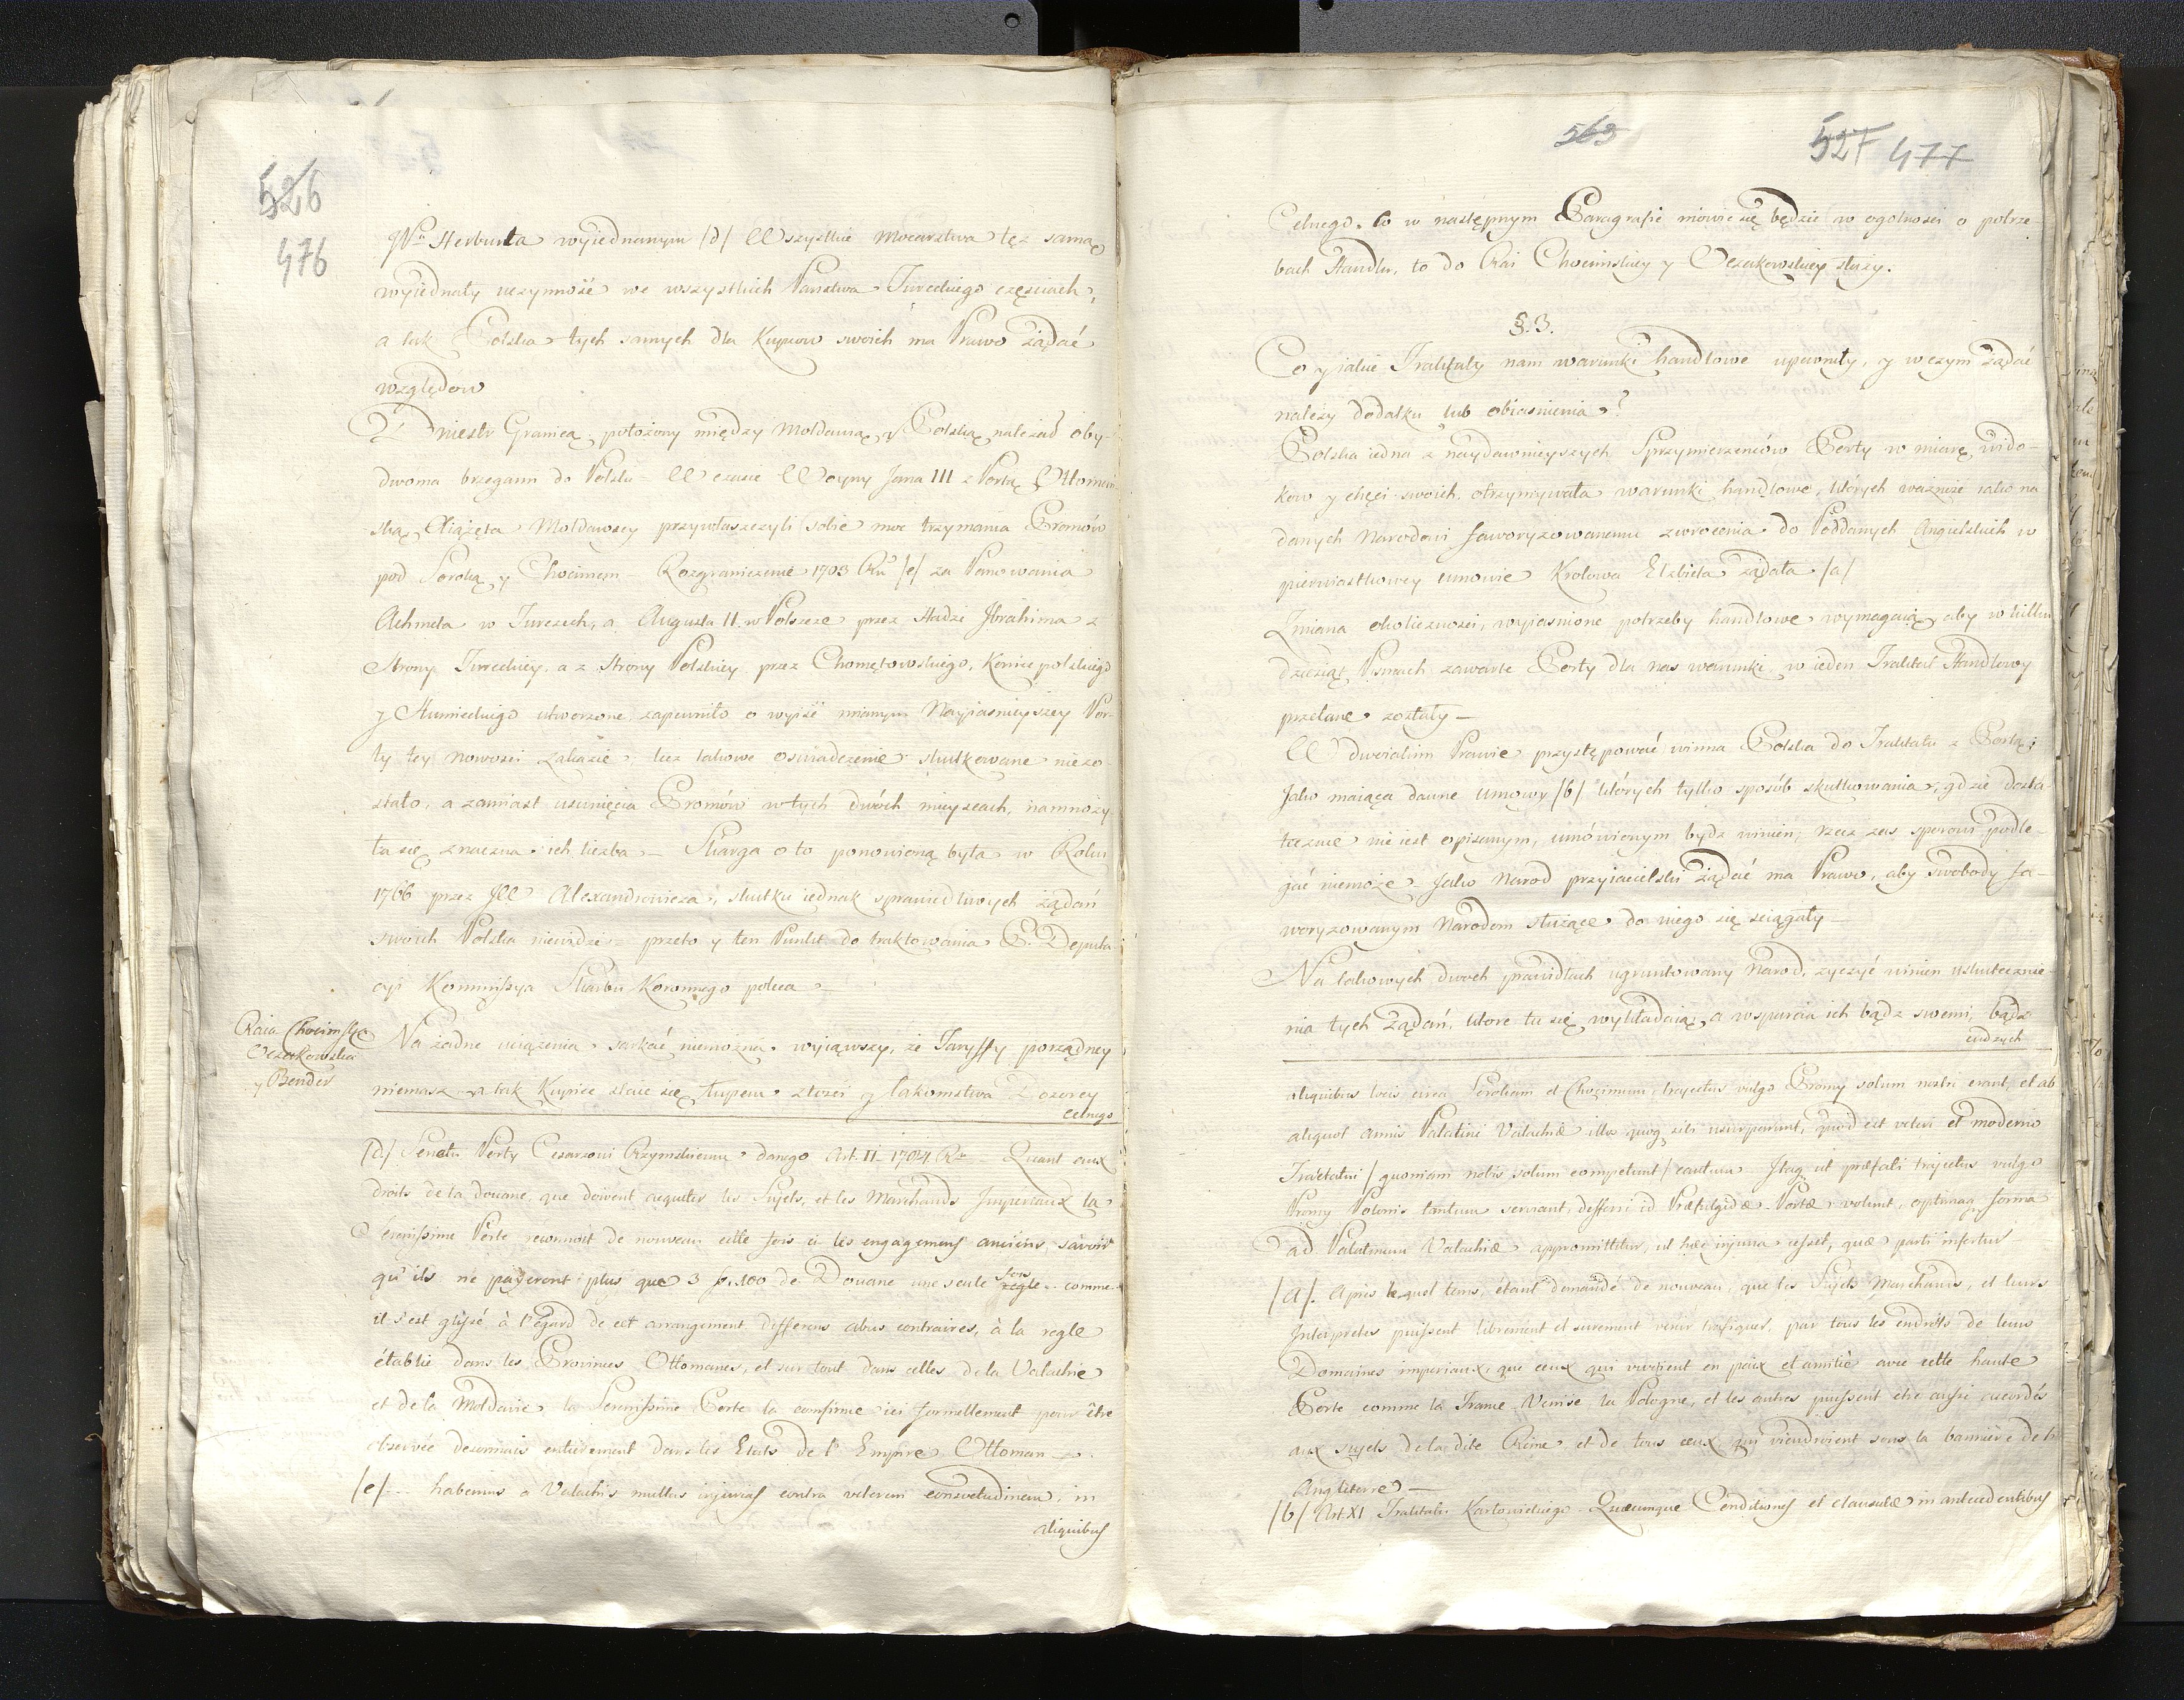 526
476
JPa Herburta wyiednanym /d/ Wszystkie Mocarstwa tęż samą
wyiednały uczynność we wszystkich Państwa Tureckiego częściach,
a tak Polska tych samych dla Kupców swoich ma Prawo żądać
względów
Dniestr Granicą położony między Mołdawią y Polską należał oby-
dwoma brzegami do Polski - W czasie Woyny Jana III z Portą Ottomań-
ską, Xiążęta Mołdawscy przywłaszczyli sobie moc trzymania Promów
pod Soroką y Chocimem - Rozgraniczenie 1703 Ru /e/ za Panowania
Achmeta w Turczech, a Augusta II. w Polszcze przez Hadzi Ibrahima z
Strony Tureckiey, a z Strony Polskiey przez Chomętowskiego, Koniecpolskiego
y Humieckiego utworzone, zapewniło o wyiść mianym Nayiaśnieyszey Por-
ty tey nowości zakazie, lecz takowe oświadczenie skutkowane niezo-
stało, a zamiast usunięcia Promów w tych dwóch mieyscach, namnoży-
ła się znaczna ich liczba - Skarga o to ponowioną była w Roku
1766 przez JW Alexandrowicza, skutku iednak sprawiedliwych żądań
swoich Polska niewidzi - przeto y ten Punkt do traktowania P. Deputa
cyi Kommissya Skarbu Koronnego poleca -
Raia Chocimska
Oczakowska
y Bender
Na żadne uciążenia sarkać niemożna wyiąwszy, że Taryffy porządney
niemasz - a tak Kupiec staie się łupem złości y łakomstwa Dozorcy
Celnego
/d/ Senetu Porty Cesarzowi Rzymskiemu danego Art. II - 1784 Ru - Quant aux
droits de la douane, que doivent acquiter les Sujets, et les Marchands Imperiaux la
Serenissime Porte reconnoit de nouveau cette fois ci les engagemens anciens, savoir
qu'ils ne payeront plus que 3 p. 100 de Douane une seule fois regle - comme
il s'est glissé à l'égard de cet arrangement differens abus contraires, à la regle
établie dans les Provinces Ottomanes, et sur tout dans celles de la Valachie
et de la Moldavie la Serenissime Porte la confirme ici formellement pour être
observée desormais entierement dans les Etats de l' Empire Ottoman -
/e/ - habemus a Valachis multas injurias contra veterem consvetudinem, in
aliquibus
569
527 477
Celnego. Co w następnym Paragrafie mówić się będzie w ogólności o potrze
bach Handlu, to do Rai Chocimskiey y Oczakowskiey służy.
§. 3.
Co y iakie Traktaty nam warunki handlowe upewniły, y w czym żądać
należy dodatku lub obiaśnienia?
Polska iedna z naydawnieyszych Sprzymierzeńców Porty w miarę wido-
ków y chęci swoich, otrzymywała warunki handlowe, których ważność iako na
danych Narodowi faworyzowanemu zwrócenia do Poddanych Angielskich w
pierwiastkowey umowie Krolowa Elżbieta żądała /a/
Zmiana okoliczności, wyiaśnione potrzeby handlowe wymagaią, aby w kilku
dziesiąt Pismach zawarte Porty dla nas warunki, w ieden Traktat Handlowy
przelane zostały -
W dwoiakim Prawie przystępować winna Polska do Traktatu z Portą;
Jako maiąca dawne umowy /b/ których tylko sposób skutkowania, gdzie dosta
tecznie nie iest opisanym, umówionym bydź winien; rzecz zaś sporowi podle-
gać niemoże - Jako Narod przyiacielski żądać ma Prawo, aby swobody fa-
woryzowanym Narodom służące do niego się ściągały -
Na takowych dwóch prawidłach ugruntowany Narod, życzyć winien uskutecznie
nia tych Żądań, które tu się wykładaią, a wsparcia ich bądź swemi, bądź
cudzych
aliquibus locis circa Sorokam et Chocimum, trajectus vulgo Promy solum nostri erant, et ab
aliquot annis Palatini Valachiæ illos quoq sibi usurparunt, quod est veteri et moderno
Tractatui /quoniam nobis solum competunt/ cautum - Itaq ut præfati trajectus vulgo
Promy Polonis tantum serviant, defferri id Præfulgidæ Portæ volunt, optimaq forma
ad Palatinum Valachiæ appromittitur, ut hæc injuria cesset, quæ parti infertur -
/a/. Apres lequel tems, étant demandé de nouveau, que les Sujets Marchands, et leurs
Interpretes puissent librement et surement venir trafiquer par tous les endroits de leurs
Domaines imperiaux, que ceux qui vivoient en paix et amitié avec cette haute
Porte comme la France, Venise, la Pologne, et les autres puissent etre aussi accordés
aux sujets de la dite Reine et de tous ceux, qui viendroient sous la banniere de l'
Angleterre -
/b/ Art. XI Traktatu Karłowickiego - Quæcunque Conditiones et clausulæ in antecedentibus